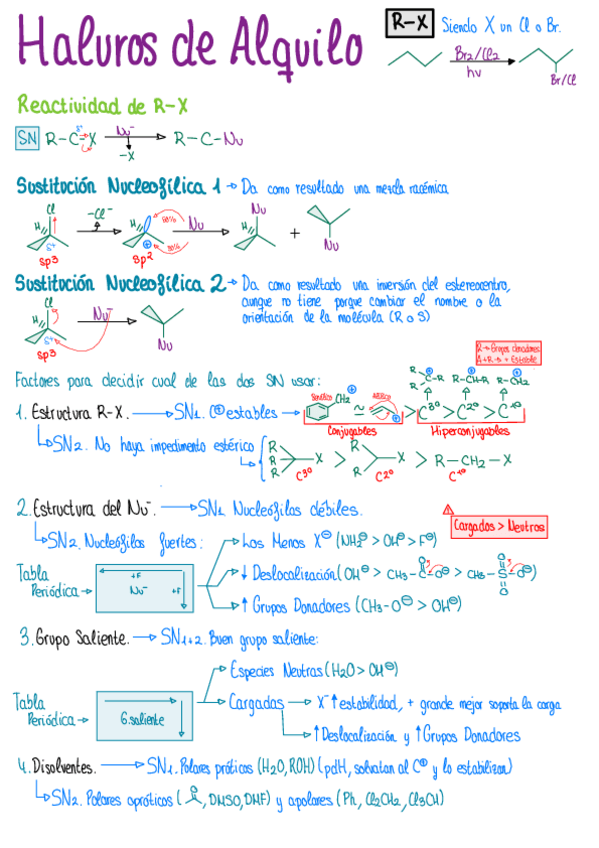 Haluros de Alquilo
R-X Siendo X un Cl o Br.
Br2/Cl2
hν
Br/Cl
Reactividad de R-X
SN R-C-X Nu⁻ R-C-Nu
-X
Sustitución Nucleofílica 1 → Da como resultado una mezcla racémica
Cl -Cl⁻ Nu Nu
H H H + Nu
sp3 sp2
Sustitución Nucleofílica 2 → Da como resultado una inversión del estereocentro,
aunque no tiene porque cambiar el nombre o la
orientación de la molécula (R o S)
Cl Nu⁻
H Nu
sp3
R → Grupos donadores
Factores para decidir cual de las dos SN usar:
1. Estructura R-X. → SN1. C⊕ estables → CH2 ≃ > C3º > C2º > C1º
Conjugables Hiperconjugables
SN2. No haya impedimento estérico R R R X > R R X > R-CH2-X
C3º C2º C1º
2. Estructura del Nu⁻. → SN1 Nucleófilos débiles.
Cargados > Neutros
SN2. Nucleófilos fuertes: → Los Menos X⊖ (NH2⊖ > OH⊖ > F⊖)
Tabla Periódica → +F Nu⁻ +F
↓ Deslocalización (OH⊖ > CH3-C-O⊖ > CH3-S-O⊖)
↑ Grupos Donadores (CH3-O⊖ > OH⊖)
3. Grupo Saliente. → SN1+2. Buen grupo saliente:
Especies Neutras (H2O > OH⊖)
Tabla Periódica → G.saliente
Cargadas → X⁻ ↑ estabilidad, + grande mejor soporta la carga
↑ Deslocalización y ↑ Grupos Donadores
4. Disolventes. → SN1. Polares próticos (H2O, ROH) (pdH, solvatan al C⊕ y lo estabilizan)
SN2. Polares apróticos ( , DMSO, DMF) y apolares (Ph, Cl2CH2, Cl3CH)